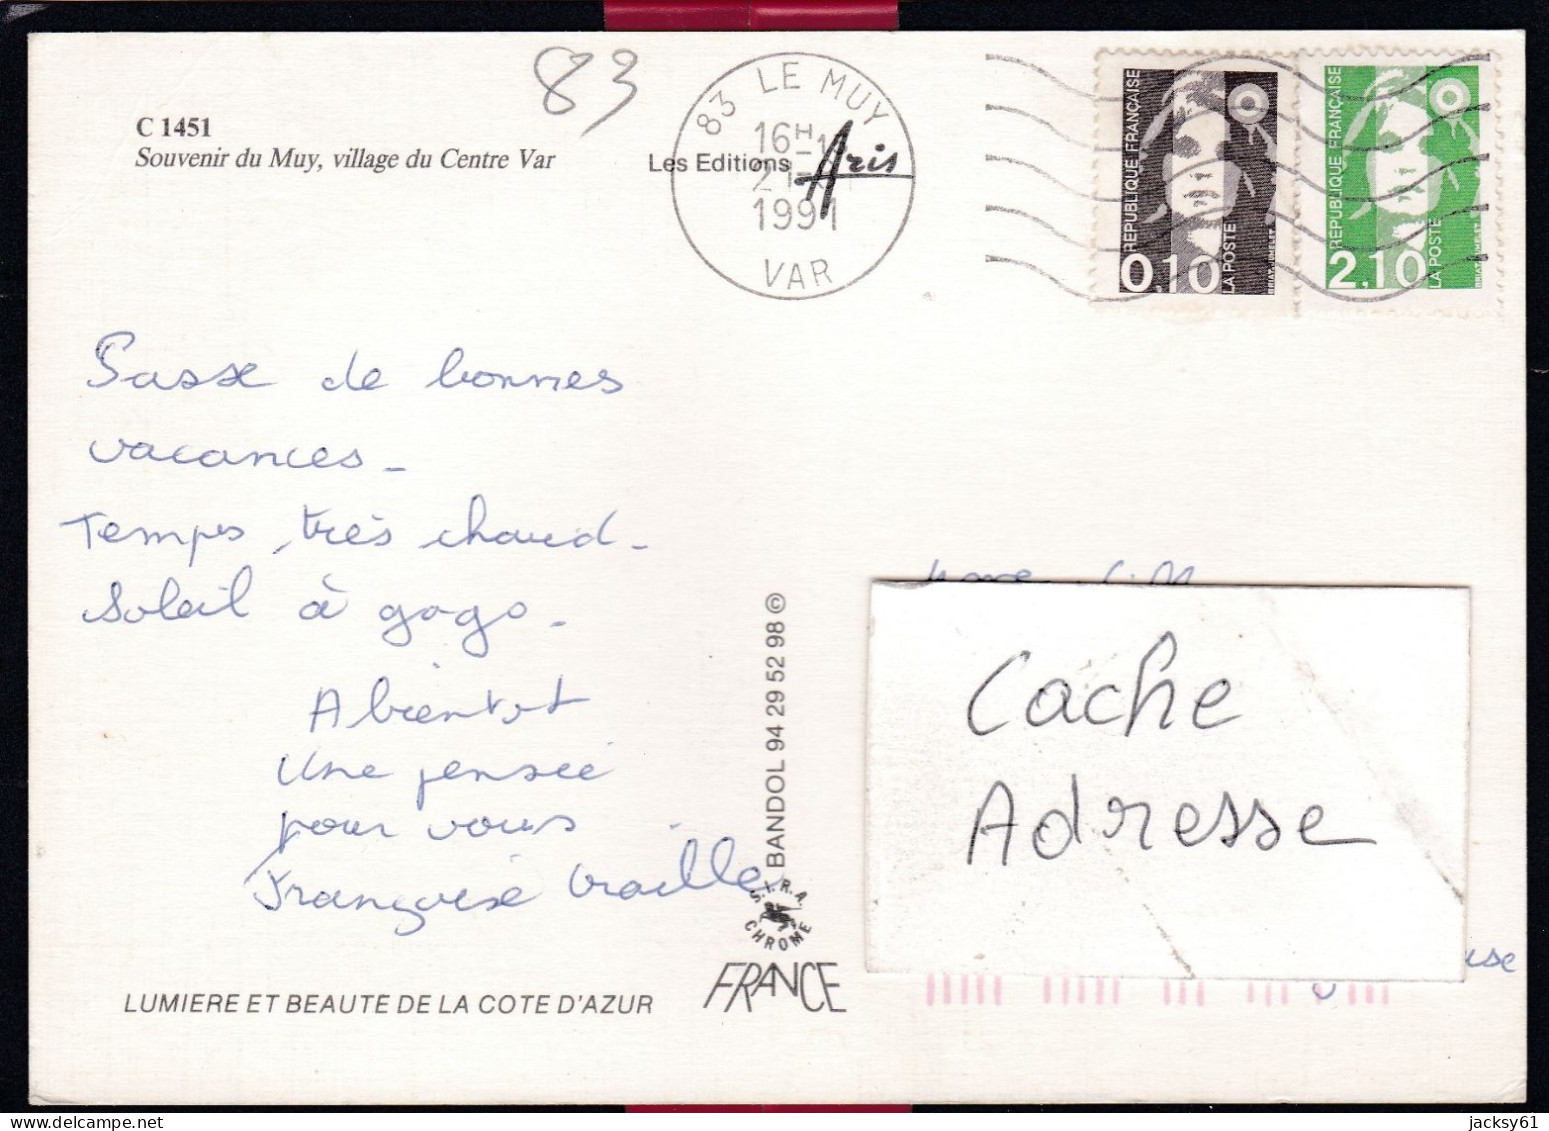 83
C 1451
Souvenir du Muy, village du Centre Var
Les Editions Aris
83 LE MUY
16H-1
1991
VAR
REPUBLIQUE FRANÇAISE
LA POSTE
0,10
REPUBLIQUE FRANÇAISE
LA POSTE
2,10
Passe de bonnes
vacances_
Temps très chaud_
Soleil à gogo_
A bientot
Une pensée
pour vous
Françoise
BANDOL 94 29 52 98 ©
S.I.R.A.
CHROME
FRANCE
LUMIERE ET BEAUTE DE LA COTE D'AZUR
Cache
Adresse
use
jacksy61